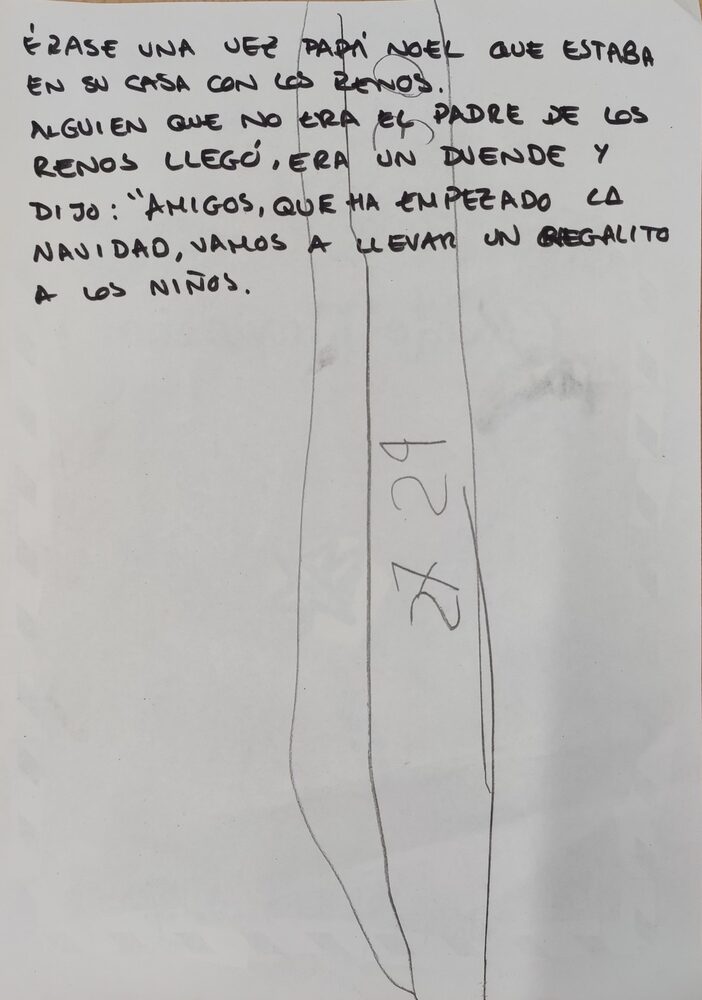 ÉRASE UNA VEZ PAPÁ NOEL QUE ESTABA
EN SU CASA CON LOS RENOS.
ALGUIEN QUE NO ERA EL PADRE DE LOS
RENOS LLEGÓ, ERA UN DUENDE Y
DIJO: "AMIGOS, QUE HA EMPEZADO LA
NAVIDAD, VAMOS A LLEVAR UN REGALITO
A LOS NIÑOS.
27 29